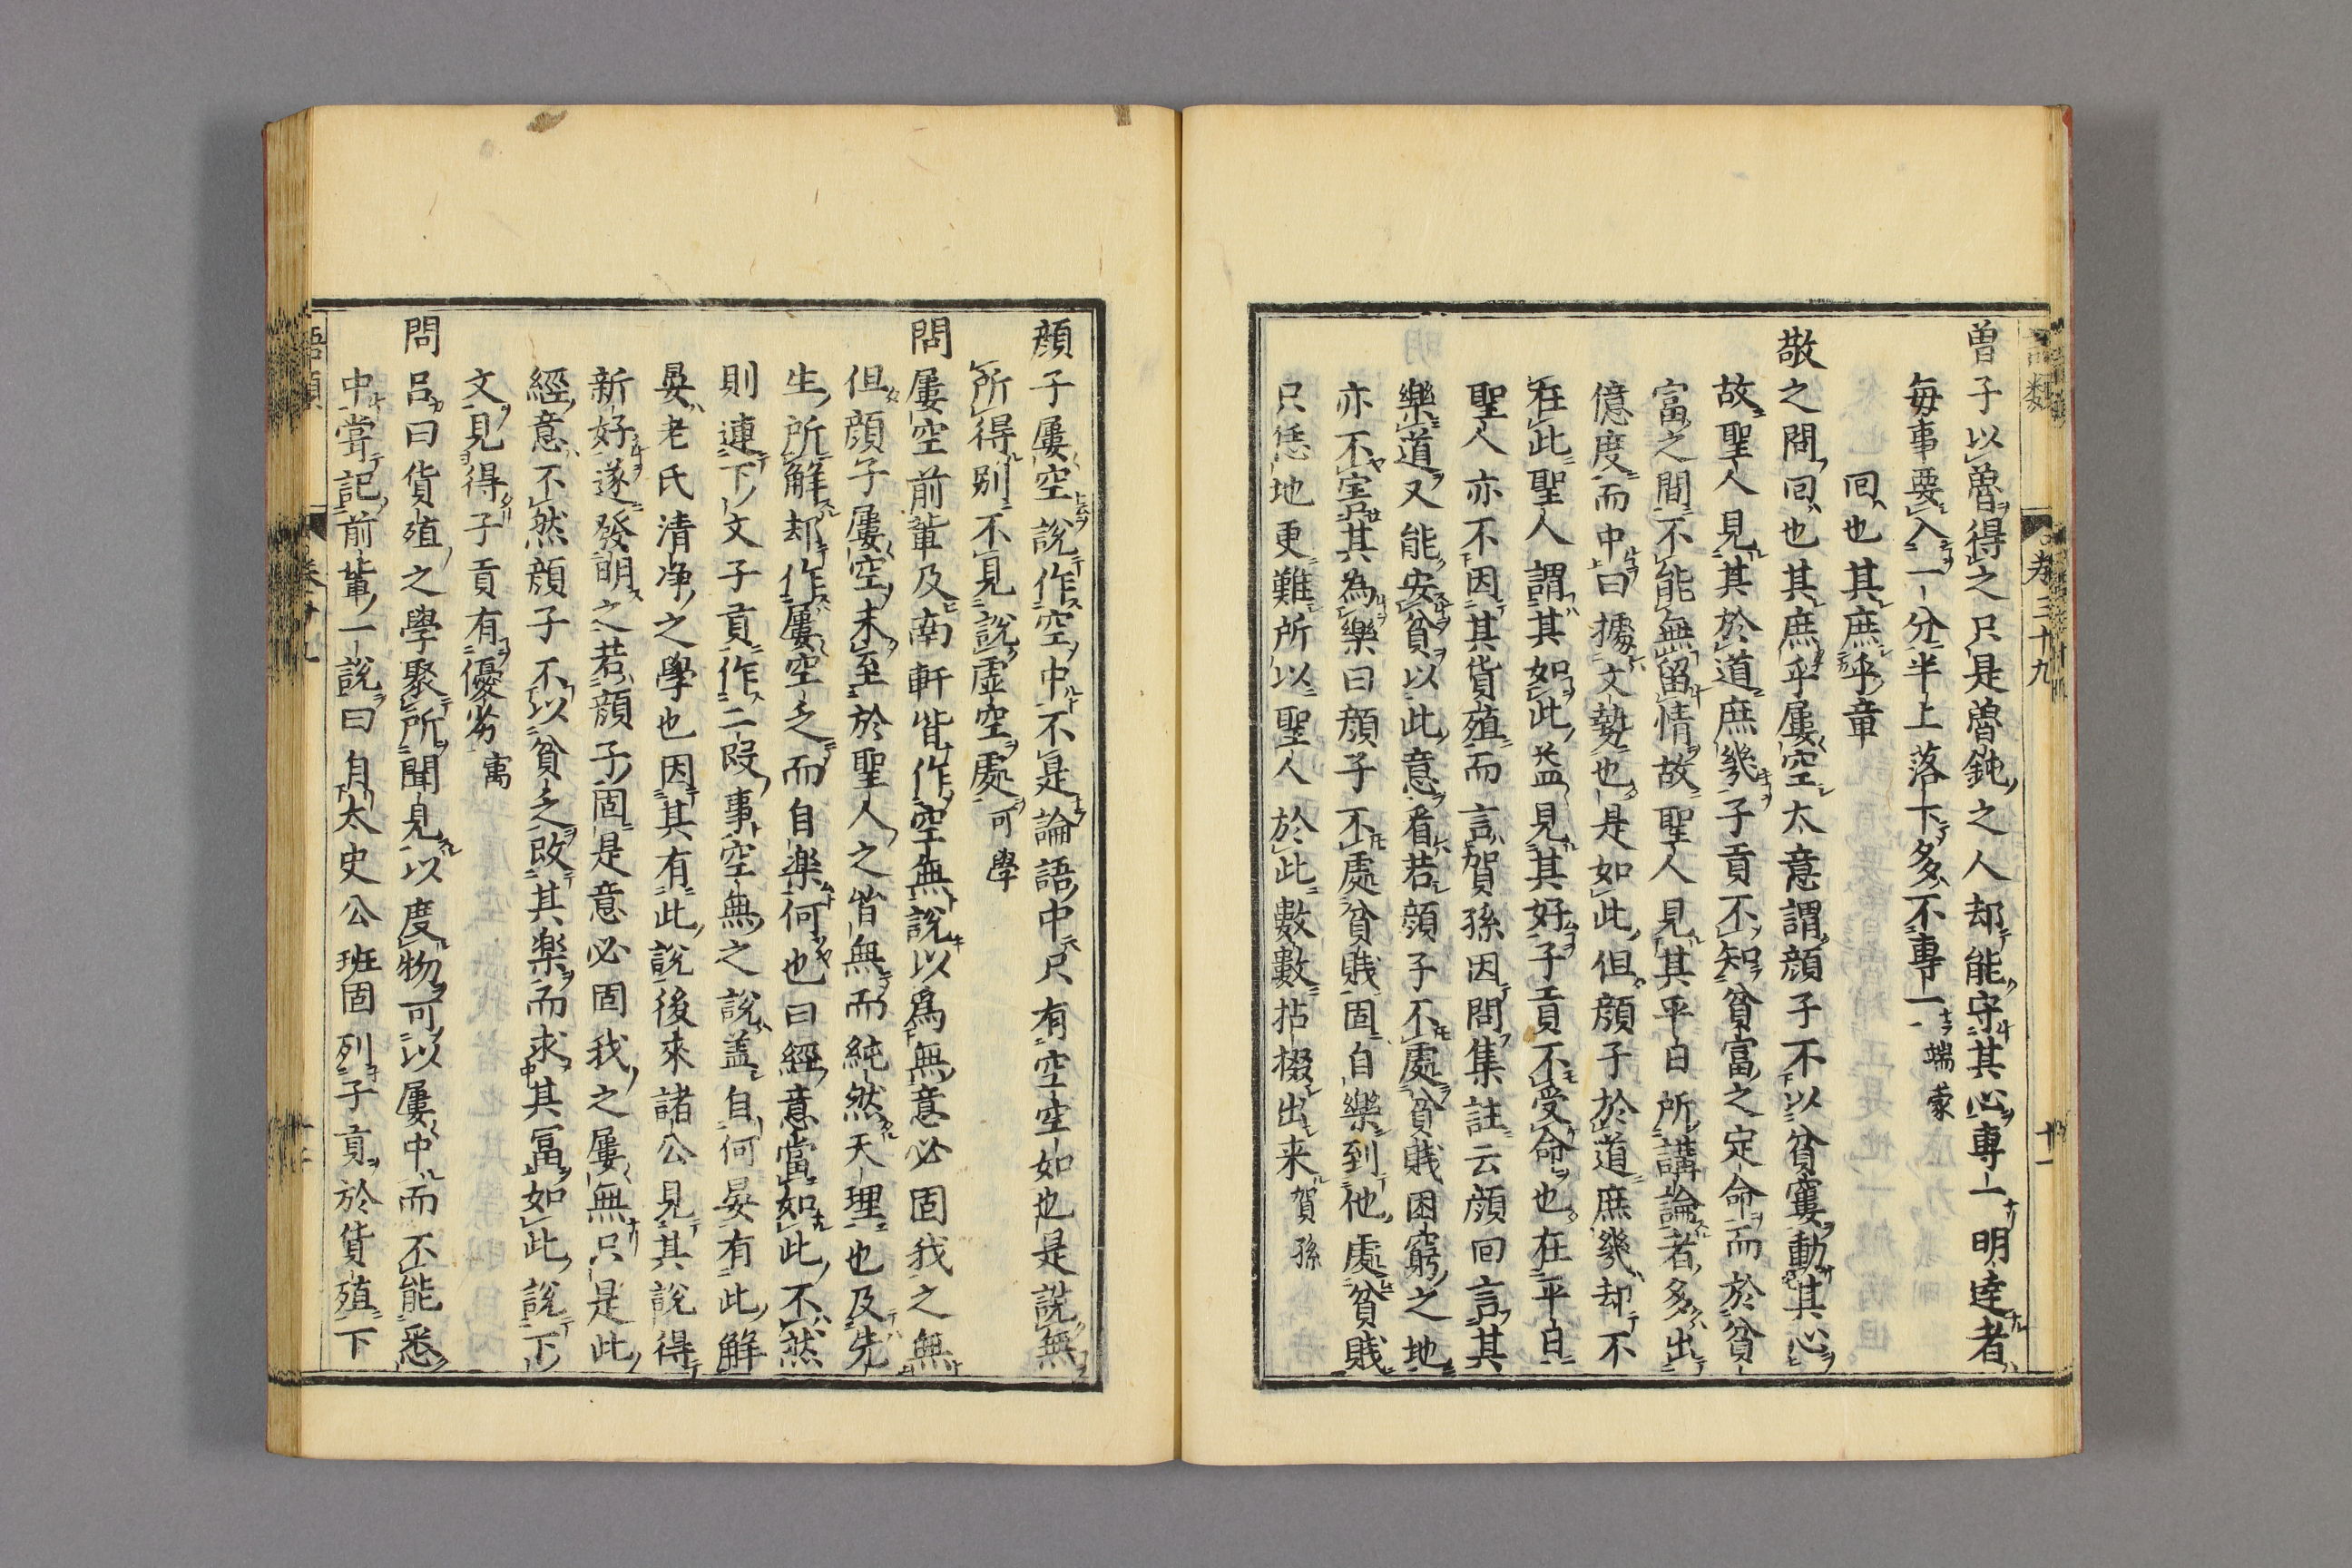 曽子以魯得之只是魯鈍之人却能守其心專一明逹者
毎事要入一分半上落下多不專一端蒙
回也其庶乎章
敬之問回也其庶乎屢空大意謂顔子不以貧窶動其心
故聖人見其於道庶幾子貢不知貧富之定命而於貧
富之間不能無留情故聖人見其平日所講論者多出
億度而中曰據文勢也是如此但顔子於道庶幾却不
在此聖人謂其如此益見其好子貢不受命也在平日
聖人亦不因其貨殖而言賀孫因問集註云顔回言其
樂道又能安貧以此意看若顔子不處貧賤困窮之地
亦不害其為樂曰顔子不處貧賤固自樂到他處貧賤
只恁地更難所以聖人於此數數拈掇出来賀孫
顔子屢空說作空中不是論語中只有空空如也是說無
所得别不見說虚空處可學
問屢空前輩及南軒皆作空無說以爲無意必固我之無
但顔子屢空未至於聖人之皆無而純然天理也及先
生所解却作屢空乏而自楽何也曰經意當如此不然
則連下文子貢作二段事空無之說盖自何晏有此解
晏老氏清净之學也因其有此說後來諸公見其說得
新好遂發明之若顔子固是意必固我之屢無只是此
經意不然顔子不以貧乏改其楽而求其冨如此說下
文見得子貢有優劣㝢
問吕曰貨殖之學聚所聞見以度物可以屢中而不能悉
中嘗記前輩一說曰自太史公班固列子貢於貨殖下
卷三十九
十一